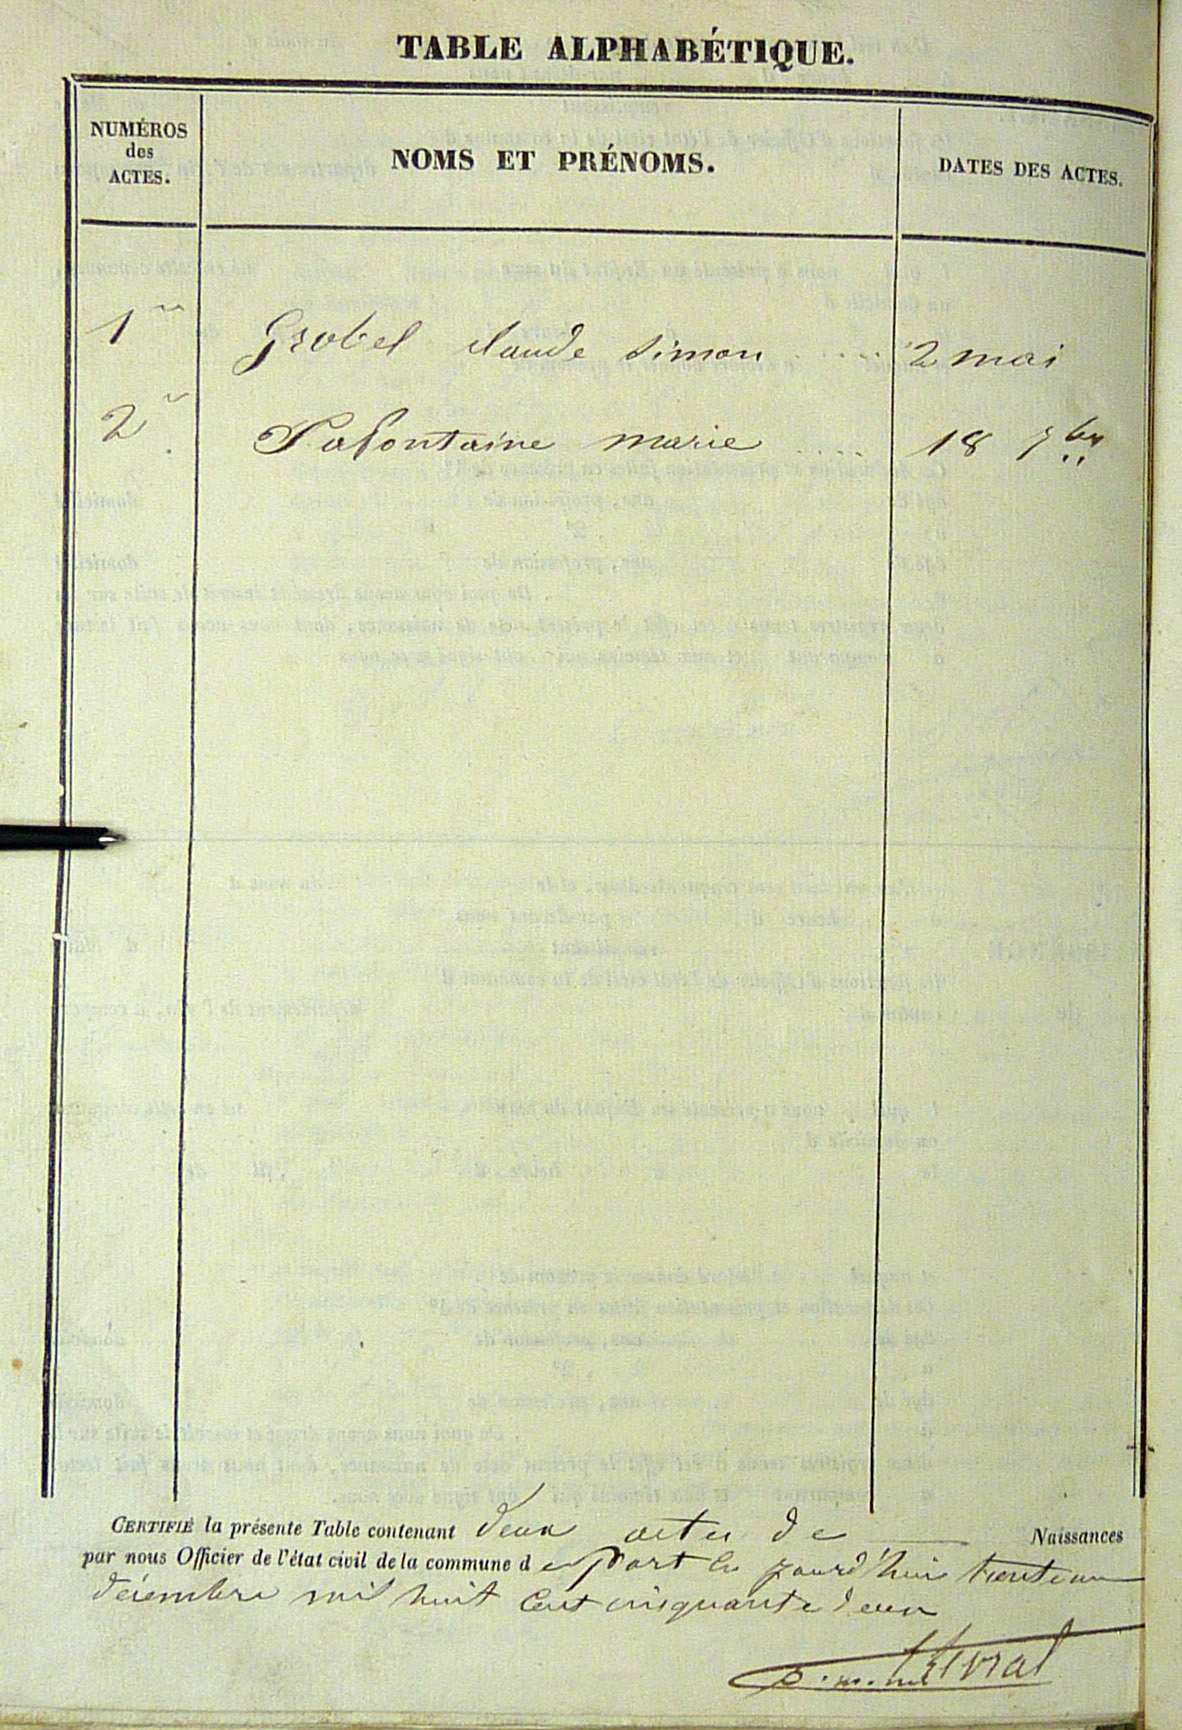 TABLE ALPHABÉTIQUE.
NUMÉROS
des
ACTES.
NOMS ET PRÉNOMS.
DATES DES ACTES.
1 Grobel claude simon ..... 2 mai
2 Lafontaine marie ..... 18 7bre
CERTIFIÉ la présente Table contenant deux actes de Naissances
par nous Officier de l'état civil de la commune de port le jourd'hui trente un
décembre mil huit cent cinquante deux